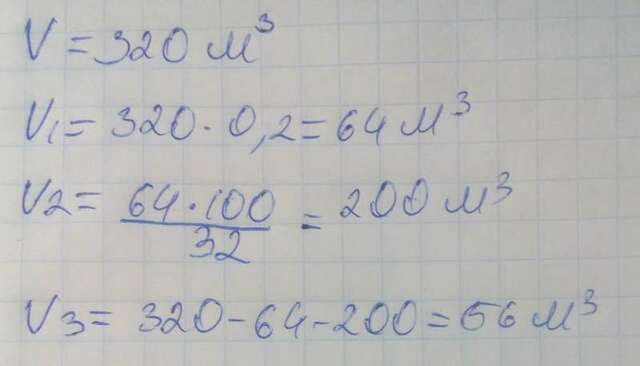 V = 320 м³
V₁ = 320 · 0,2 = 64 м³
V2 = 64 · 100 / 32 = 200 м³
V3 = 320 - 64 - 200 = 56 м³